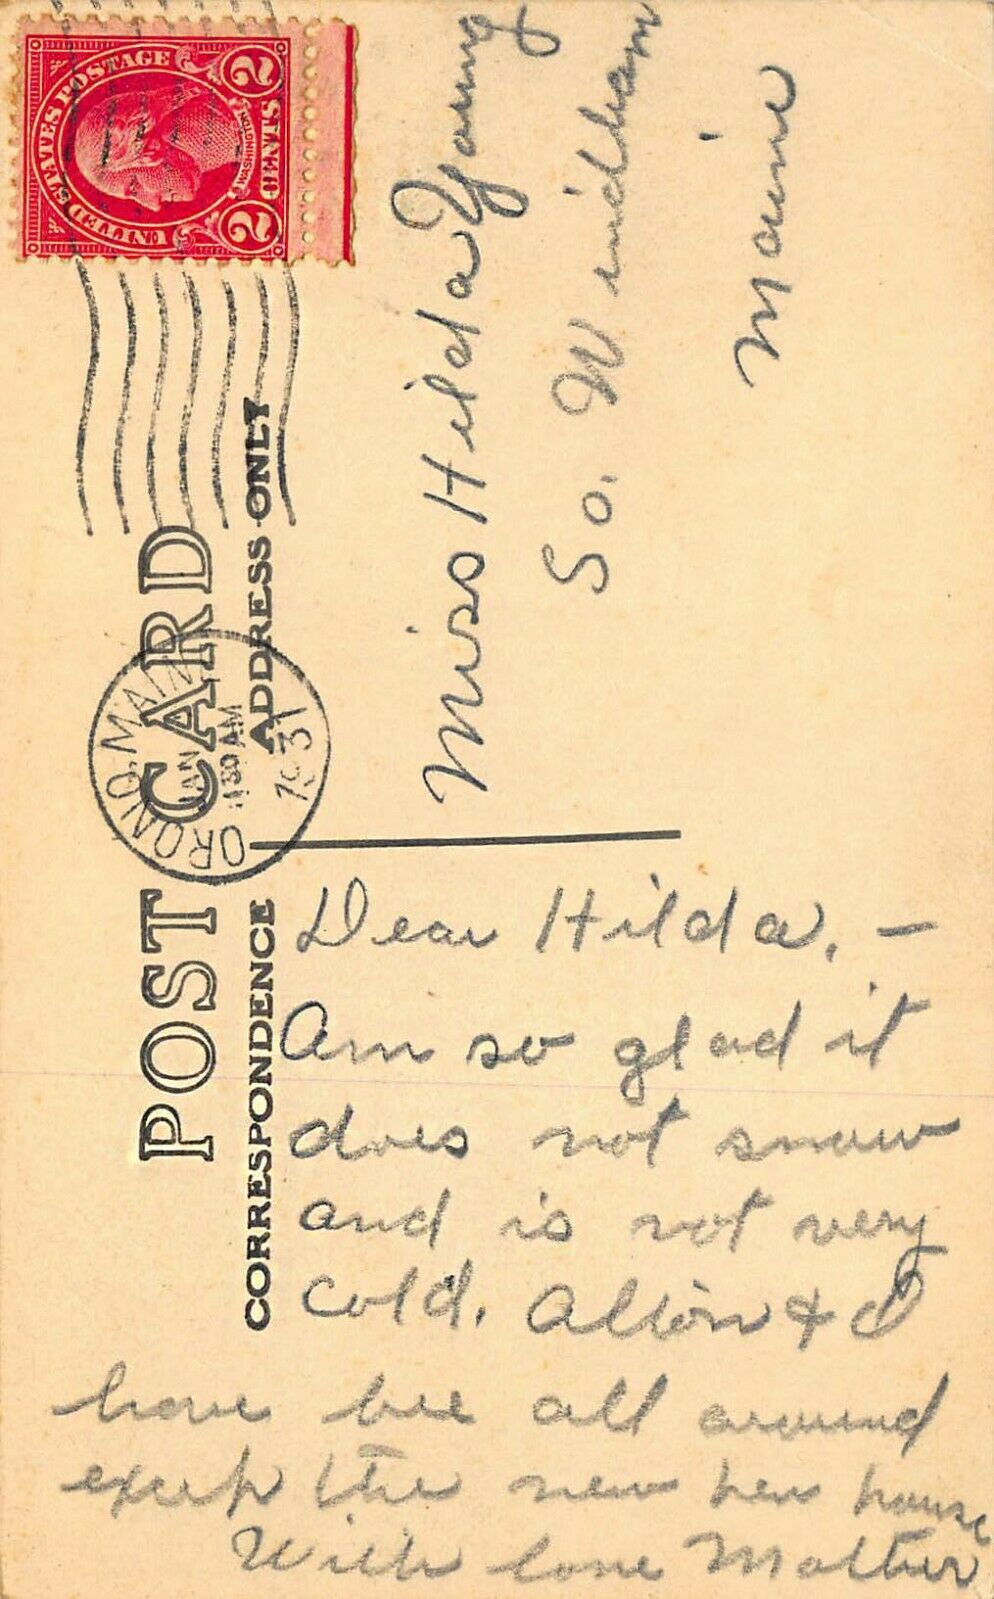 UNITED STATES POSTAGE
WASHINGTON
2 CENTS 2
POST CARD
CORRESPONDENCE
ADDRESS ONLY
ORONO, MAINE
JAN
30 AM
1931
Miss Hilda Young
So. Windham
Maine
Dear Hilda, —
Am so glad it
does not snow
and is not very
cold. Alton & I
have bee all around
excep the new hen house
With love Mother